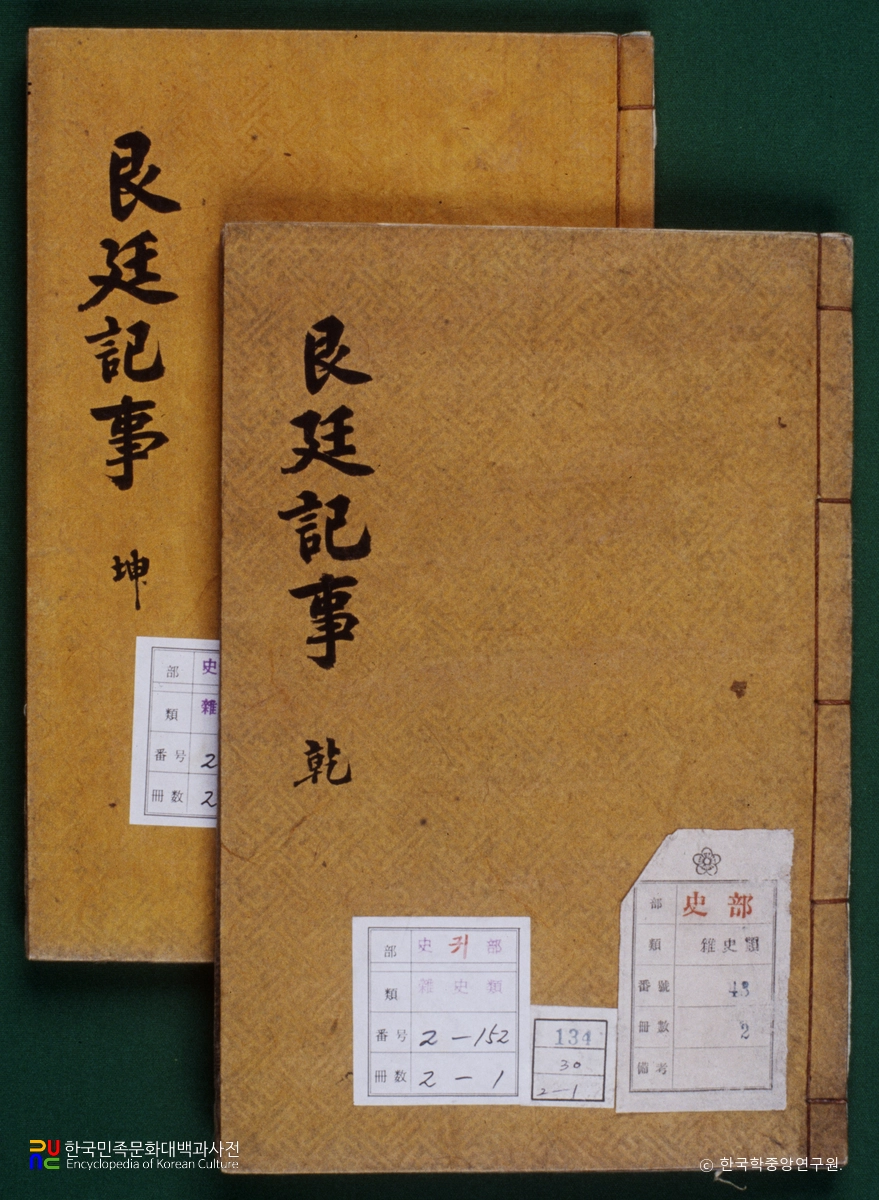 艮廷記事 坤
部 史
類 雜
番号 2
冊数 2
艮廷記事 乾
部 史 귀 部
類 雜史類
番号 2-152
冊数 2-1
134
30
2-1
部 史部
類 雜史類
番號 43
冊數 2
備考
한국민족문화대백과사전
Encyclopedia of Korean Culture
© 한국학중앙연구원.